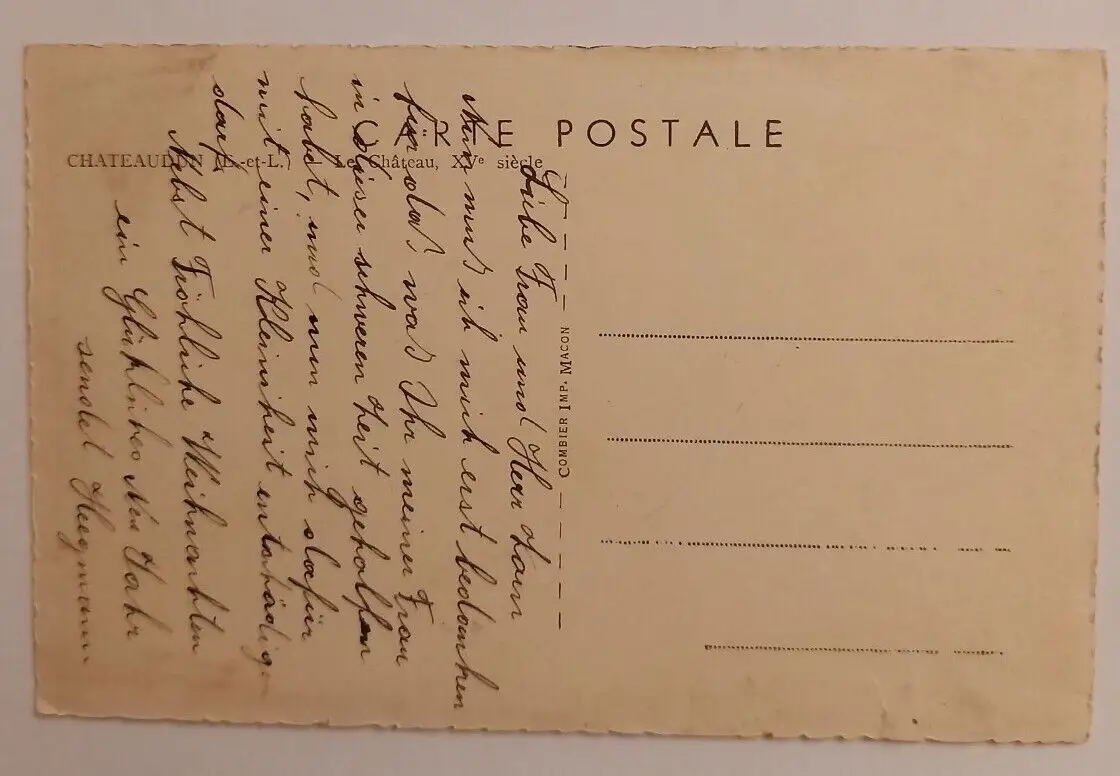 CARTE POSTALE
CHATEAUDUN (E.-et-L.) - Le Château, XVe siècle
COMBIER IMP. MACON
Liebe Frau und Herr
Nun mus ich mich erst bedanken
für das was Ihr meiner Frau
in diser schweren Zeit geholfen
habt, und nun mich dafür
mit einer Kleinheit entschädigen
darf.
Nebst Fröhliche Weihnachten
ein Glückliches Neu Jahr
sendet Heegmann